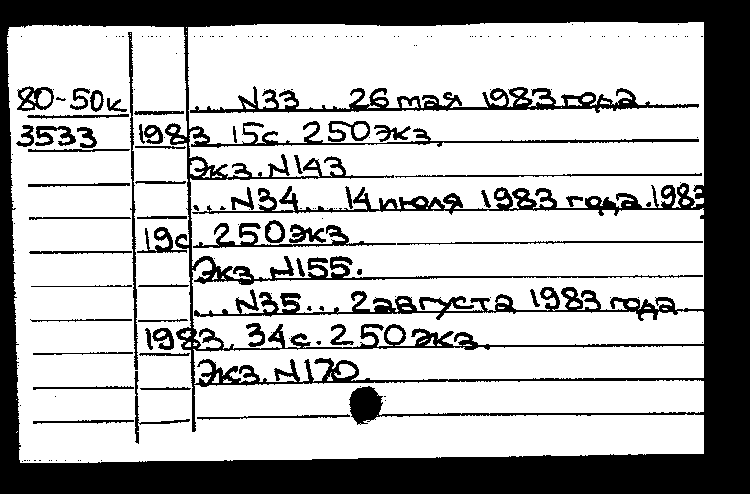 80-50к ... N33 ... 26 мая 1983 года.
3533 1983. 15с. 250 экз.
Экз. N143
... N34 ... 14 июля 1983 года. 1983
19с. 250 экз.
Экз. N155.
... N35 ... 2 августа 1983 года.
1983. 34с. 250 экз.
Экз. N170.